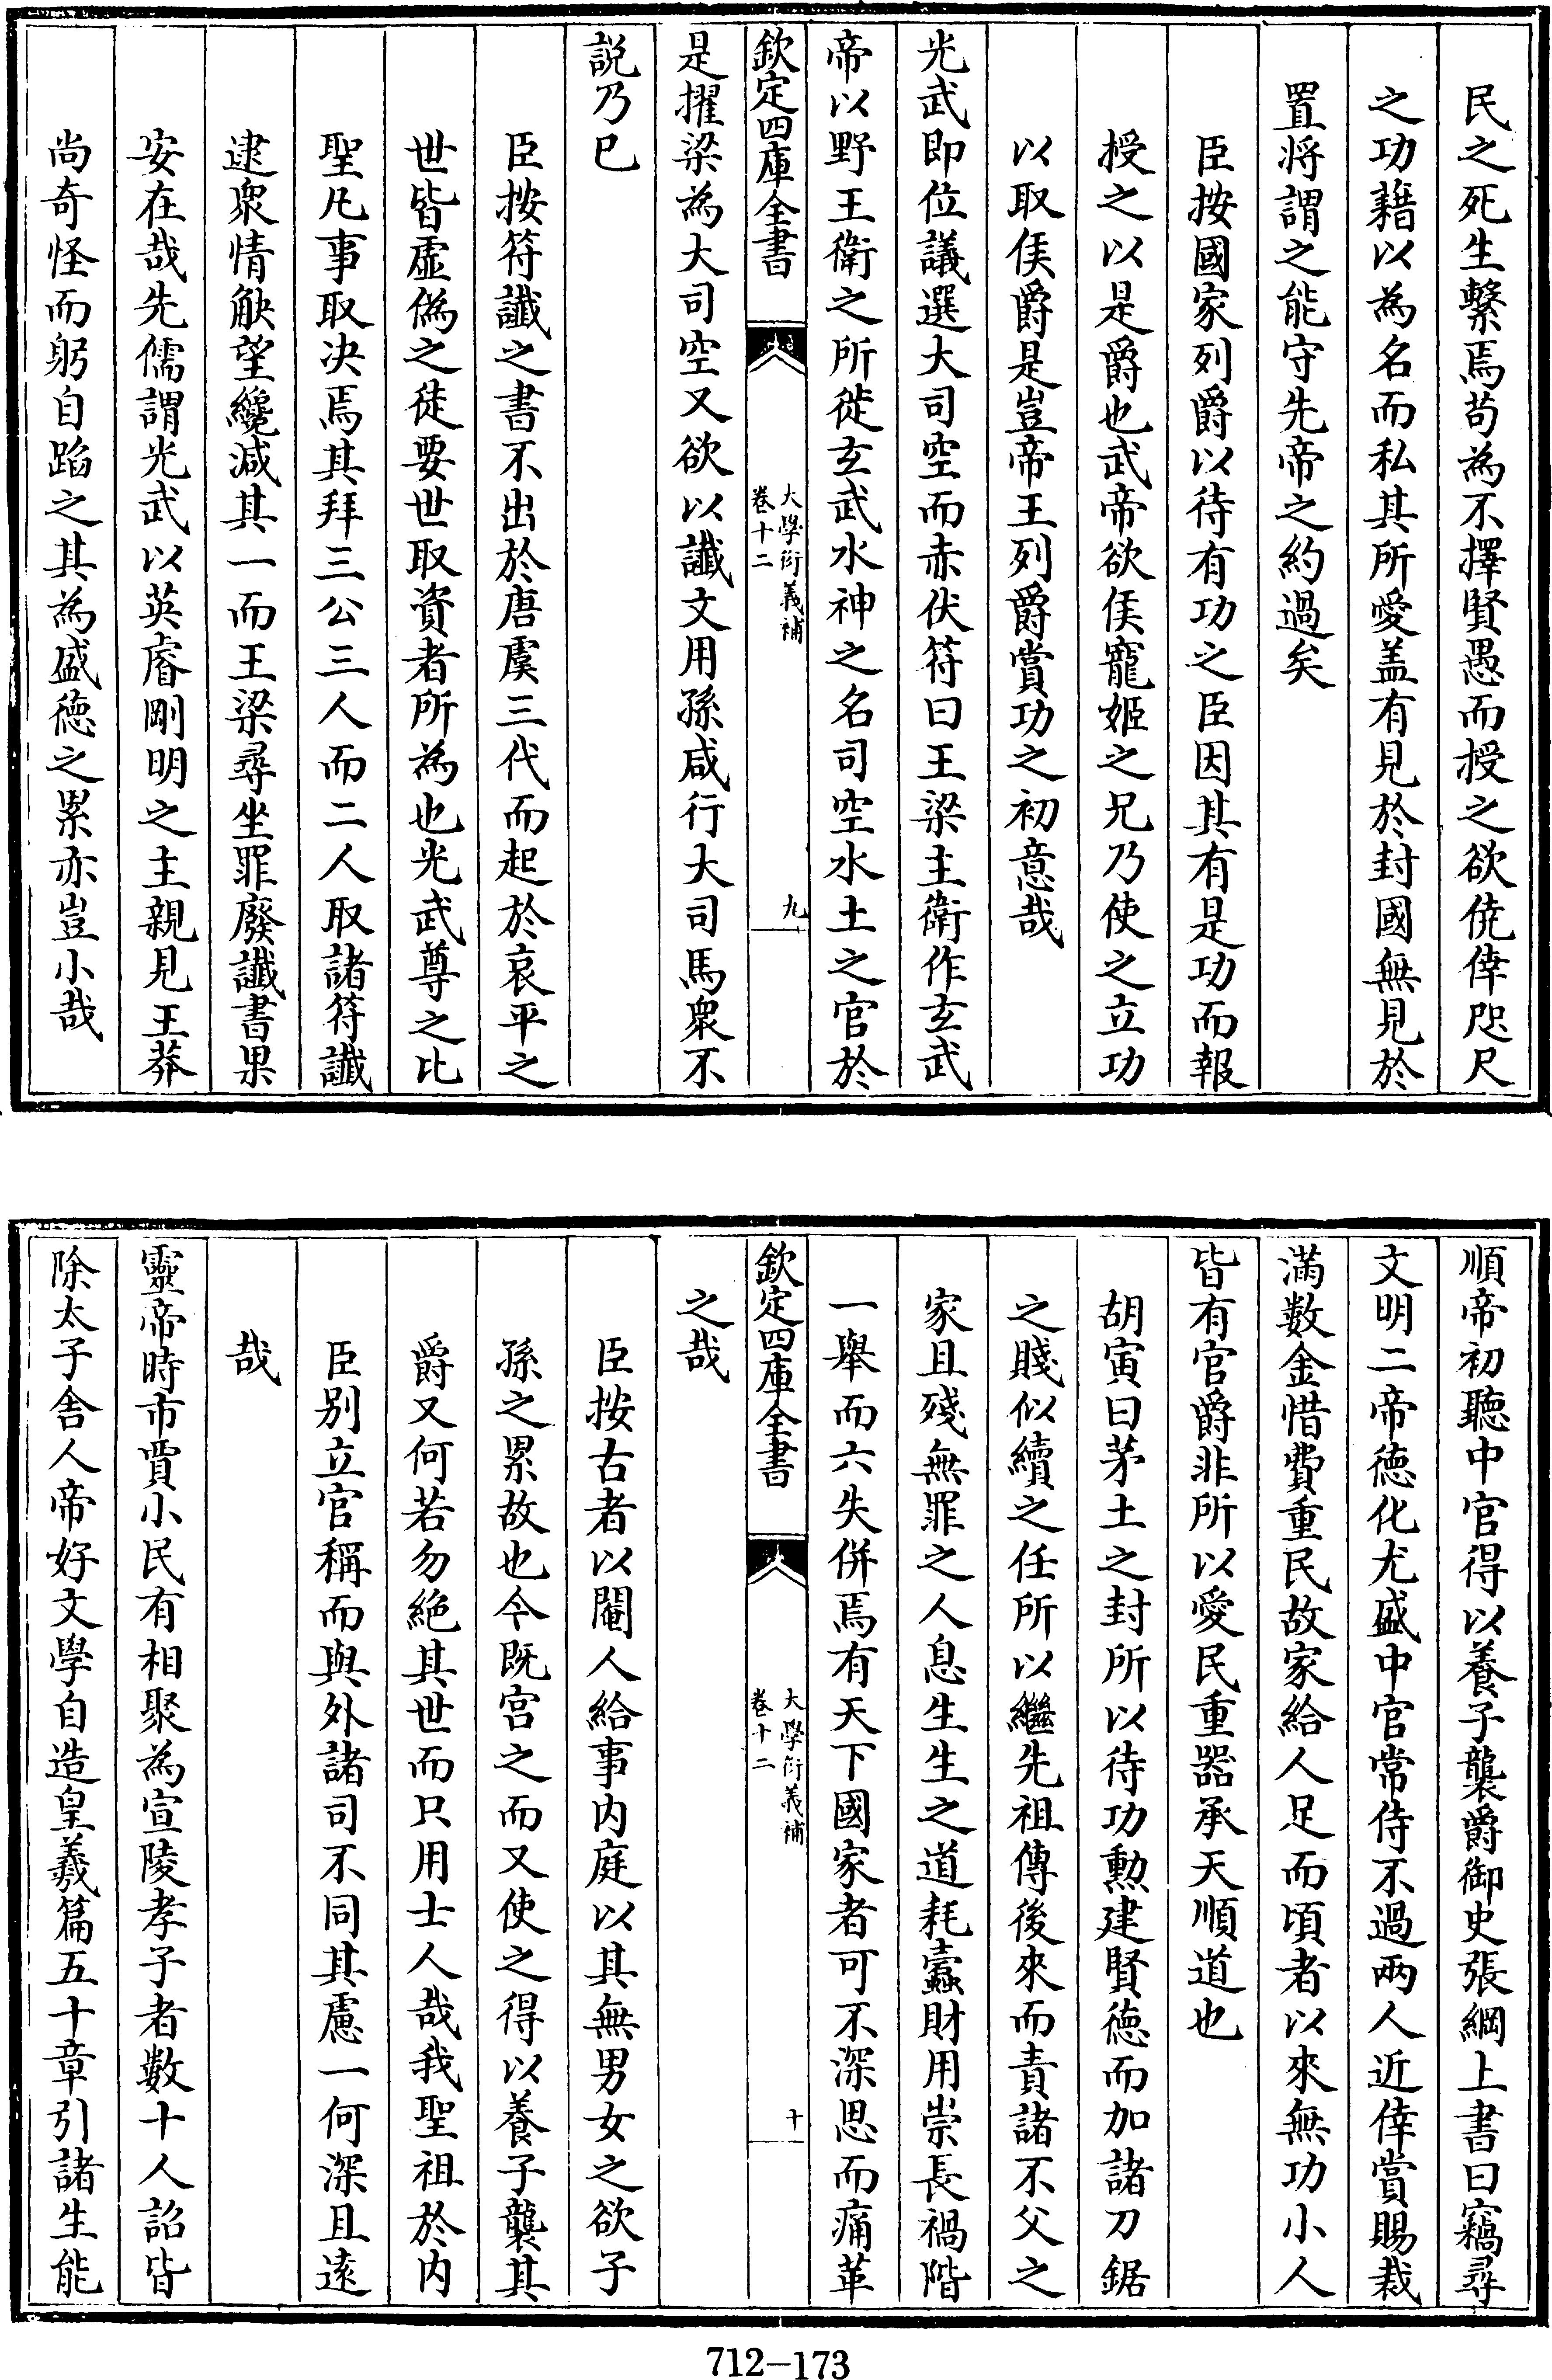 民之死生繫焉苟為不擇賢愚而授之欲僥倖咫尺
之功藉以為名而私其所愛盖有見於封國無見於
置将謂之能守先帝之約過矣
臣按國家列爵以待有功之臣因其有是功而報
授之以是爵也武帝欲侯寵姬之兄乃使之立功
以取侯爵是豈帝王列爵賞功之初意哉
光武即位議選大司空而赤伏符曰王梁主衛作玄武
帝以野王衛之所徙玄武水神之名司空水土之官於
欽定四庫全書
大學衍義補
卷十二
九
是擢梁為大司空又欲以讖文用孫咸行大司馬衆不
説乃已
臣按符讖之書不出於唐虞三代而起於哀平之
世皆虛偽之徒要世取資者所為也光武尊之比
聖凡事取决焉其拜三公三人而二人取諸符讖
逮衆情觖望纔減其一而王梁尋坐罪廢讖書果
安在哉先儒謂光武以英睿剛明之主親見王莽
尚奇怪而躬自蹈之其為盛徳之累亦豈小哉
順帝初聽中官得以養子襲爵御史張綱上書曰竊尋
文明二帝徳化尤盛中官常侍不過兩人近倖賞賜裁
滿數金惜費重民故家給人足而頃者以來無功小人
皆有官爵非所以愛民重器承天順道也
胡寅曰茅土之封所以待功勲建賢徳而加諸刀鋸
之賤似續之任所以繼先祖傳後來而責諸不父之
家且殘無罪之人息生生之道耗蠧財用崇長禍階
一舉而六失併焉有天下國家者可不深思而痛革
欽定四庫全書
大學衍義補
卷十二
十
之哉
臣按古者以閹人給事内庭以其無男女之欲子
孫之累故也今既宫之而又使之得以養子襲其
爵又何若勿絶其世而只用士人哉我聖祖於内
臣别立官稱而與外諸司不同其慮一何深且逺
哉
靈帝時市賈小民有相聚為宣陵孝子者數十人詔皆
除太子舎人帝好文學自造皇羲篇五十章引諸生能
712-173